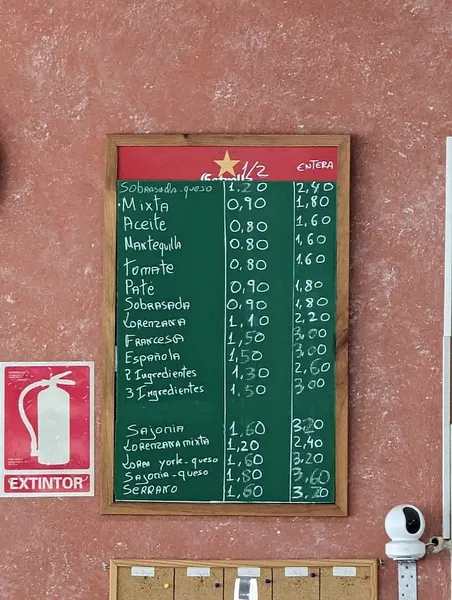 1/2 ENTERA
Sobrasada-queso 1,20 2,40
Mixta 0,90 1,80
Aceite 0,80 1,60
Mantequilla 0.80 1,60
Tomate 0,80 1.60
Paté 0,90 1,80
Sobrasada 0,90 1,80
Lorenzana 1,10 2,20
Francesa 1,50 3,00
Española 1,50 3,00
2 Ingredientes 1,30 2,60
3 Ingredientes 1,50 3,00
Sajonia 1,60 3,20
Lorenzana mixta 1,20 2,40
york-queso 1,60 3,20
Sajonia-queso 1,80 3,60
Serrano 1,60 3,20
EXTINTOR